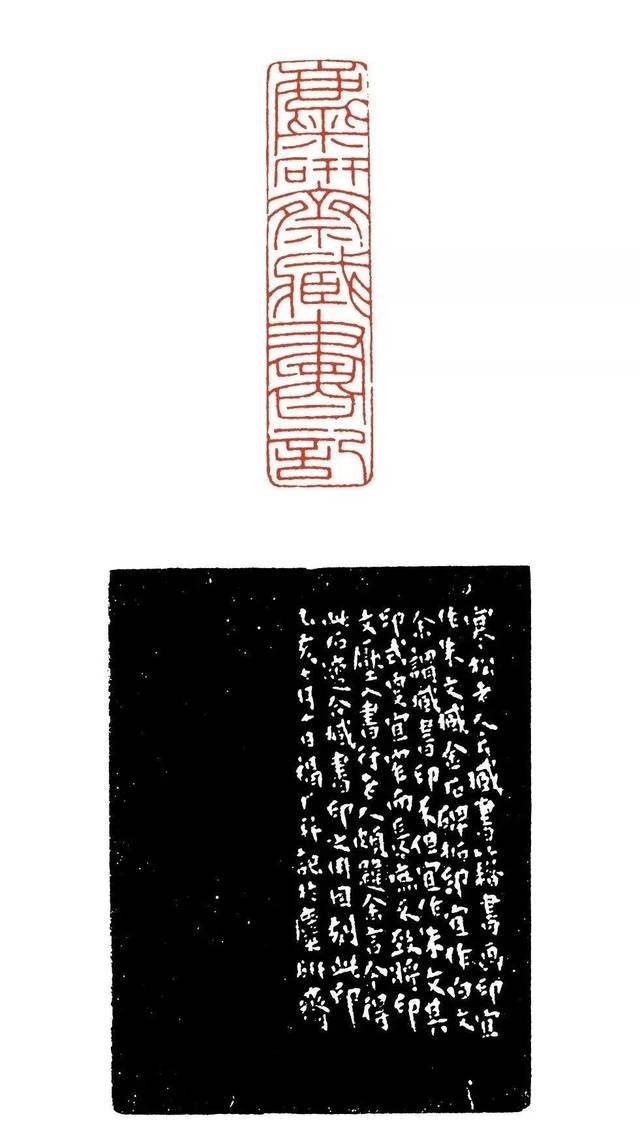 麋研齋藏書印
寒松老人云藏書籍書画印宜
作朱文藏金石碑帖印宜作白文
余謂藏書印不但宜作朱文其
印式更宜窄而長庶不致將印
文壓入書行老人頗韙余言今得
此石適合藏書印之用因刻此印
乙亥月十日福厂記於麋研齋